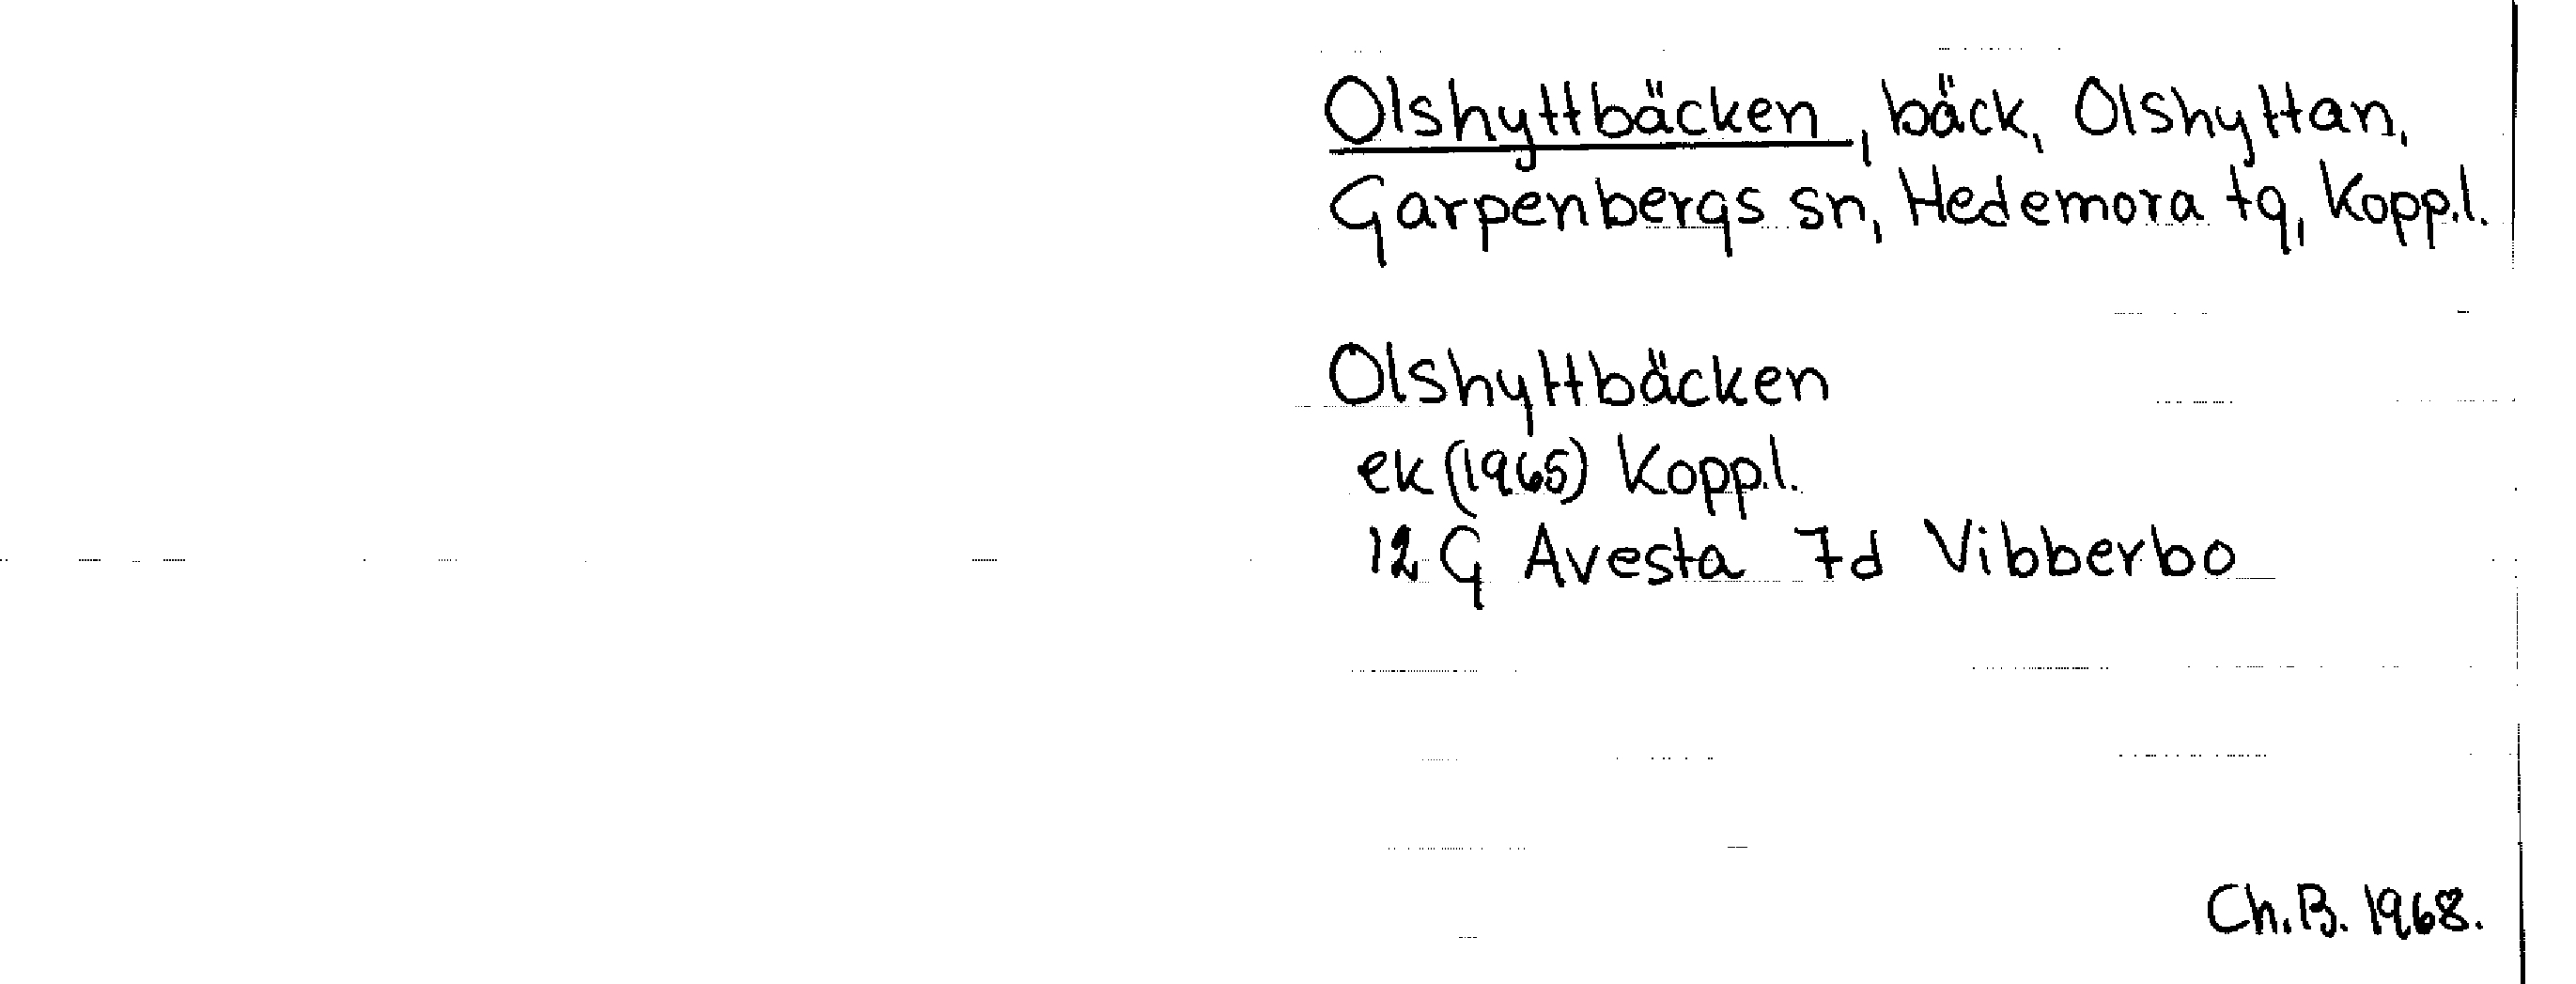 Olshyttbäcken, bäck, Olshyttan,
Garpenbergs sn, Hedemora tg, Kopp.l.
Olshyttbäcken
ek (1965) Kopp.l.
12 G Avesta 7d Vibberbo
Ch.B. 1968.